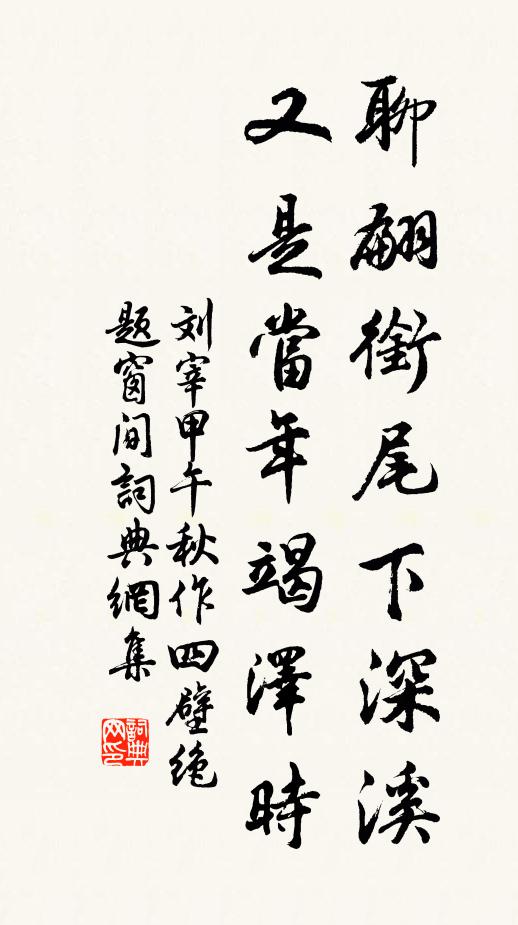 聊翩銜尾下深溪
又是當年竭澤時
刘宰甲午秋作四璧绝
题窗间詞典網集
詞典网印